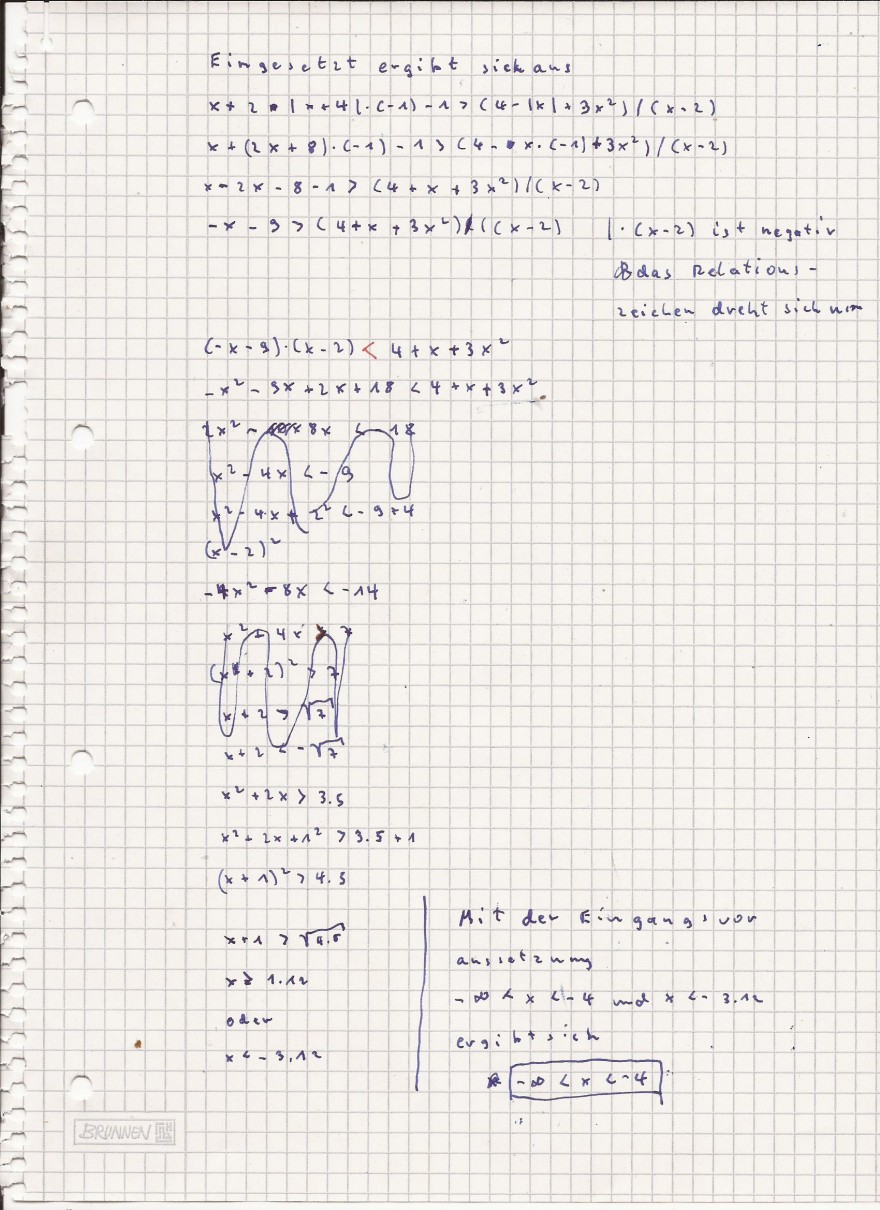 Eingesetzt ergibt sich aus
x + 2 · |x + 4| · (-1) - 1 > (4 - |x| + 3x²) / (x - 2)
x + (2x + 8) · (-1) - 1 > (4 - x · (-1) + 3x²) / (x - 2)
x - 2x - 8 - 1 > (4 + x + 3x²) / (x - 2)
-x - 9 > (4 + x + 3x²) / ((x - 2) | · (x - 2) ist negativ
das Relations-
zeichen dreht sich um
(-x - 9) · (x - 2) < 4 + x + 3x²
-x² - 9x + 2x + 18 < 4 + x + 3x²
2x² - 8x < - 18
x² - 4x < - 9
x² - 4x + 2² < - 9 + 4
(x - 2)²
-4x² - 8x < -14
x² + 4x > 7
(x + 2)² > 7
x + 2 > √7
x + 2 < -√7
x² + 2x > 3.5
x² + 2x + 1² > 3.5 + 1
(x + 1)² > 4.5
x + 1 > √4.5
x > 1.12
oder
x < - 3,12
Mit der Eingangsvor
aussetzung
-∞ < x < -4 und x < - 3.12
ergibt sich
-∞ < x < -4
BRUNNEN